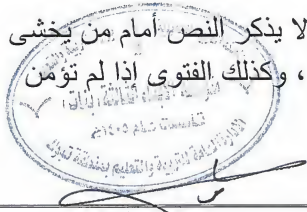 لا يذكر النص أمام من يخشى
، وكذلك الفتوى إذا لم تؤمن
تأسست عام ١٤٠٥هـ
الإدارة العامة للتربية والتعليم بمنطقة تبوك